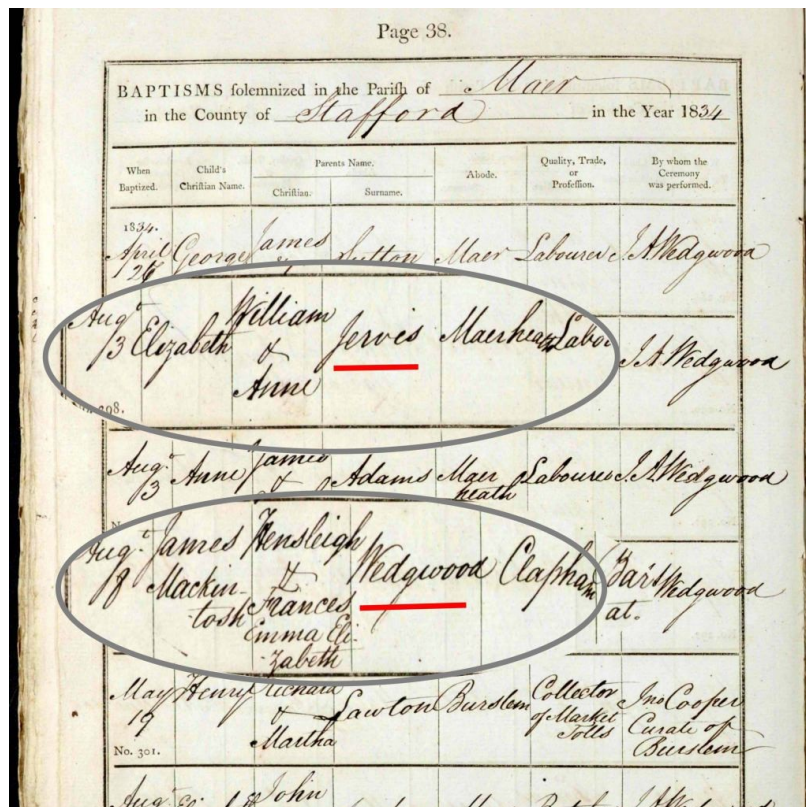 Page 38.
BAPTISMS solemnized in the Parish of Maer
in the County of Stafford in the Year 1834
When Baptized. Child's Christian Name. Parents Name. Christian. Surname. Abode. Quality, Trade, or Profession. By whom the Ceremony was performed.
1834.
April 26 George James & Sutton Maer Labourer J. A. Wedgwood
Augt 3 Elizabeth William & Anne Jervis Maerheath Labo J. A. Wedgwood
298.
Augt 3 Anne James & Adams Maer heath Labourer J. A. Wedgwood
Augt 8 James Mackintosh Hensleigh & Frances Emma Elizabeth Wedgwood Clapham Bar at. Wedgwood
May 19 Henry Richard & Martha Lawton Burslem Collector of Market Tolls Jno Cooper Curate of Burslem
No. 301.
Augt John